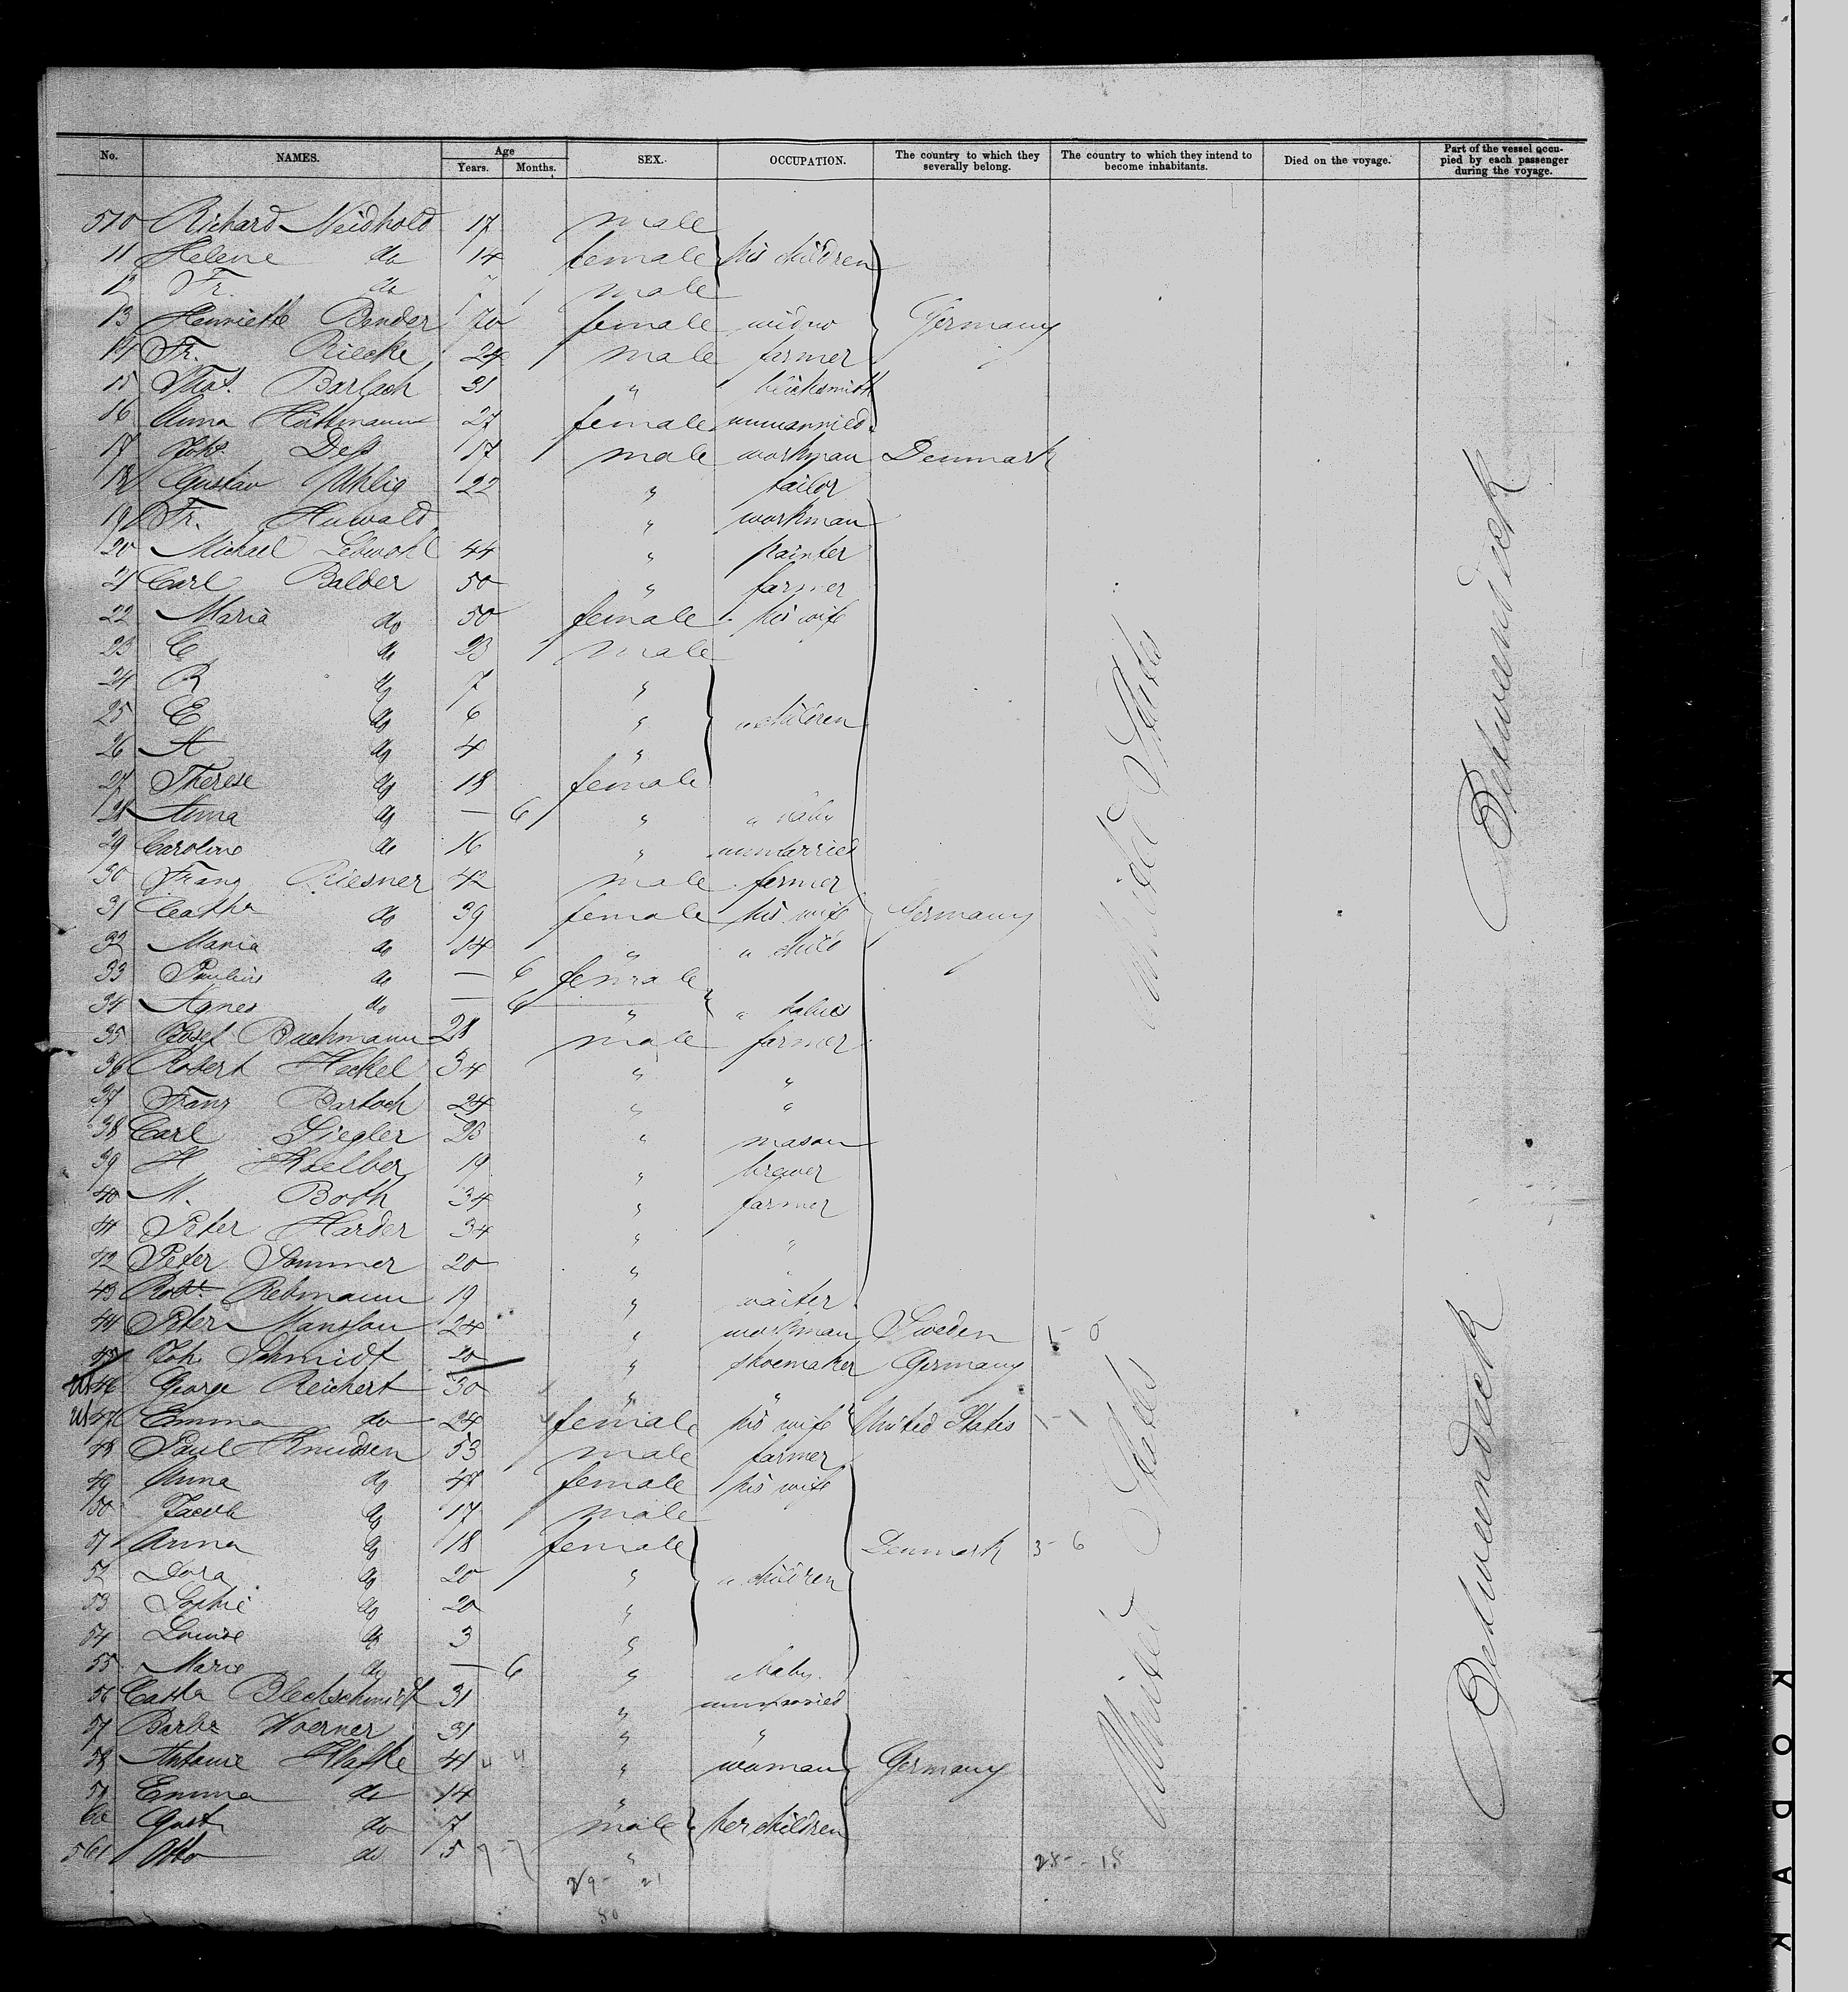 No. NAMES. Age Years. Months. SEX. OCCUPATION. The country to which they severally belong. The country to which they intend to become inhabitants. Died on the voyage. Part of the vessel occupied by each passenger during the voyage.
510 Richard Neidhold 17 male
11 Helene do 14 female his children
12 Fr. do male
13 Henriette Bender 70 female widno Germany
14 Fr. Riecke 24 male farmer
15 Barlach 31 "
16 Anna 27 female unmarried
17 Joh. 17 male workman Denmark
18 Gustav Uhlig 22 " tailor
19 Fr. Huwald " workman
20 Michael Lebwohl 44 " painter
21 Carl Balder 50 " farmer
22 Maria do 50 female his wife
23 C do 23 male
24 R do 7 "
25 E do 6 " " children
26 A do 4 "
27 Therese do 18 female
28 Anna do — 6 " " baby
29 Caroline do 16 " unmarried
30 Franz Riesner 42 male farmer
31 Catha do 39 female his wife Germany
32 Maria do 14 " " child
33 Pauline do — 6 female
34 Agnes do — 6 " " babies
35 Josef Buchmann 28 male farmer
36 Robert Heckel 34 " "
37 Franz Bartoch 24 " "
38 Carl Siegler 23 " mason
39 H. Haelber 19 " brewer
40 M. Both 34 " farmer
41 Peter Harder 34 " "
42 Peter Sommer 20 " "
43 Robt. Rebmann 19 " waiter
44 Peter Mansson 24 " workman Sweden 1 - 0
45 Joh. Schmidt 20 " shoemaker Germany
46 George Reichert 30 " "
47 Emma do 24 female his wife United States 1 - 1
48 Paul Knudsen 53 male farmer
49 Anna do 47 female his wife
50 Jacob do 17 male
51 Anna do 18 female Denmark 3 - 6
52 Dora do 20 " " children
53 Sophie do 20 "
54 Louise do 3 "
55 Marie do — 6 " " baby
56 Catha Blechschmidt 31 " unmarried
57 Barba Woerner 31 " "
58 Antonie Klafke 41 " woman Germany
59 Emma do 14 "
60 Gust. do 7 male her children
561 Otto do 5 "
28 - 18
39 - 21
United States
United States
Betweendeck
Betweendeck
KODAK